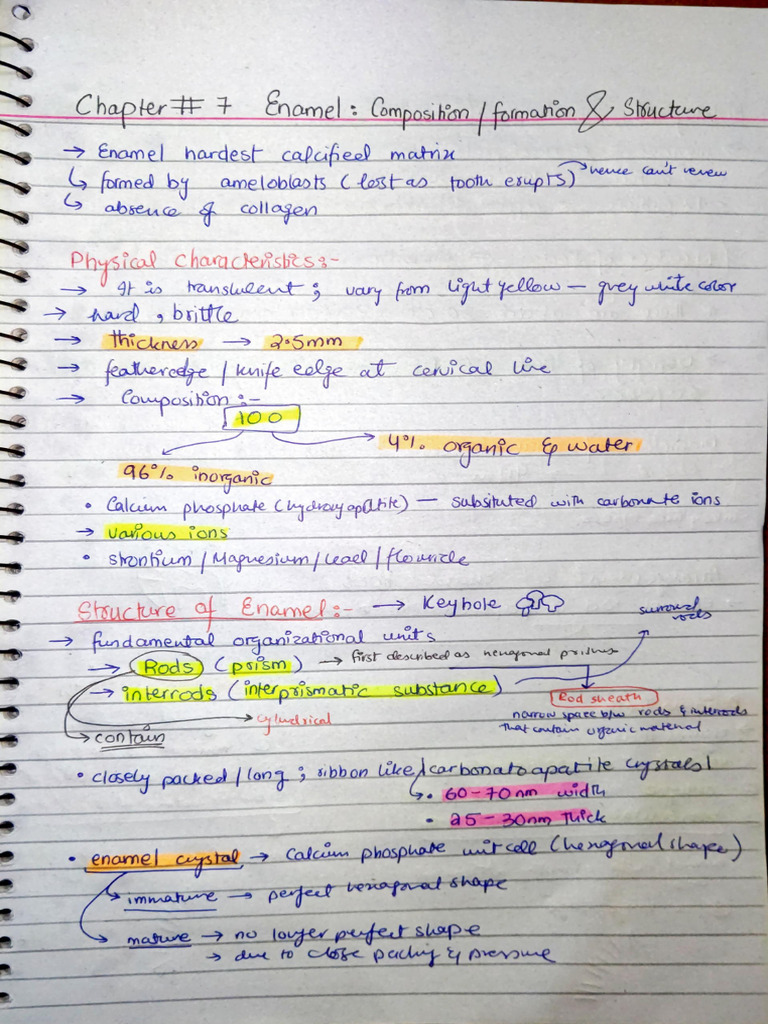 Chapter # 7 Enamel: Composition / formation & Structure
→ Enamel hardest calcified matrix
↳ formed by ameloblasts (lost as tooth erupts) → hence can't renew
↳ absence of collagen
Physical Characteristics:-
→ It is translucent ; vary from light yellow – grey white color
→ hard , brittle
→ thickness → 2.5mm
→ featheredge / knife edge at cervical line
→ Composition :-
100
4% organic & water
96% inorganic
• Calcium phosphate (hydroxyapatite) — subsituted with carbonate ions
→ various ions
• strontium / Magnesium / lead / flouride
Structure of Enamel:- → Keyhole
surround rods
→ fundamental organizational units
→ Rods (prism) → first described as hexagonal prisms
→ interrods (interprismatic substance)
Rod sheath
→ cylindrical
narrow space b/w rods & interrods
that contain organic material
→ contain
• closely packed / long ; ribbon like / carbonatoapatite crystals
• 60-70nm width
• 25-30nm thick
• enamel crystal → Calcium phosphate unit cell (hexagonal shape)
→ immature → perfect hexagonal shape
→ mature → no longer perfect shape
→ due to close packing & pressure